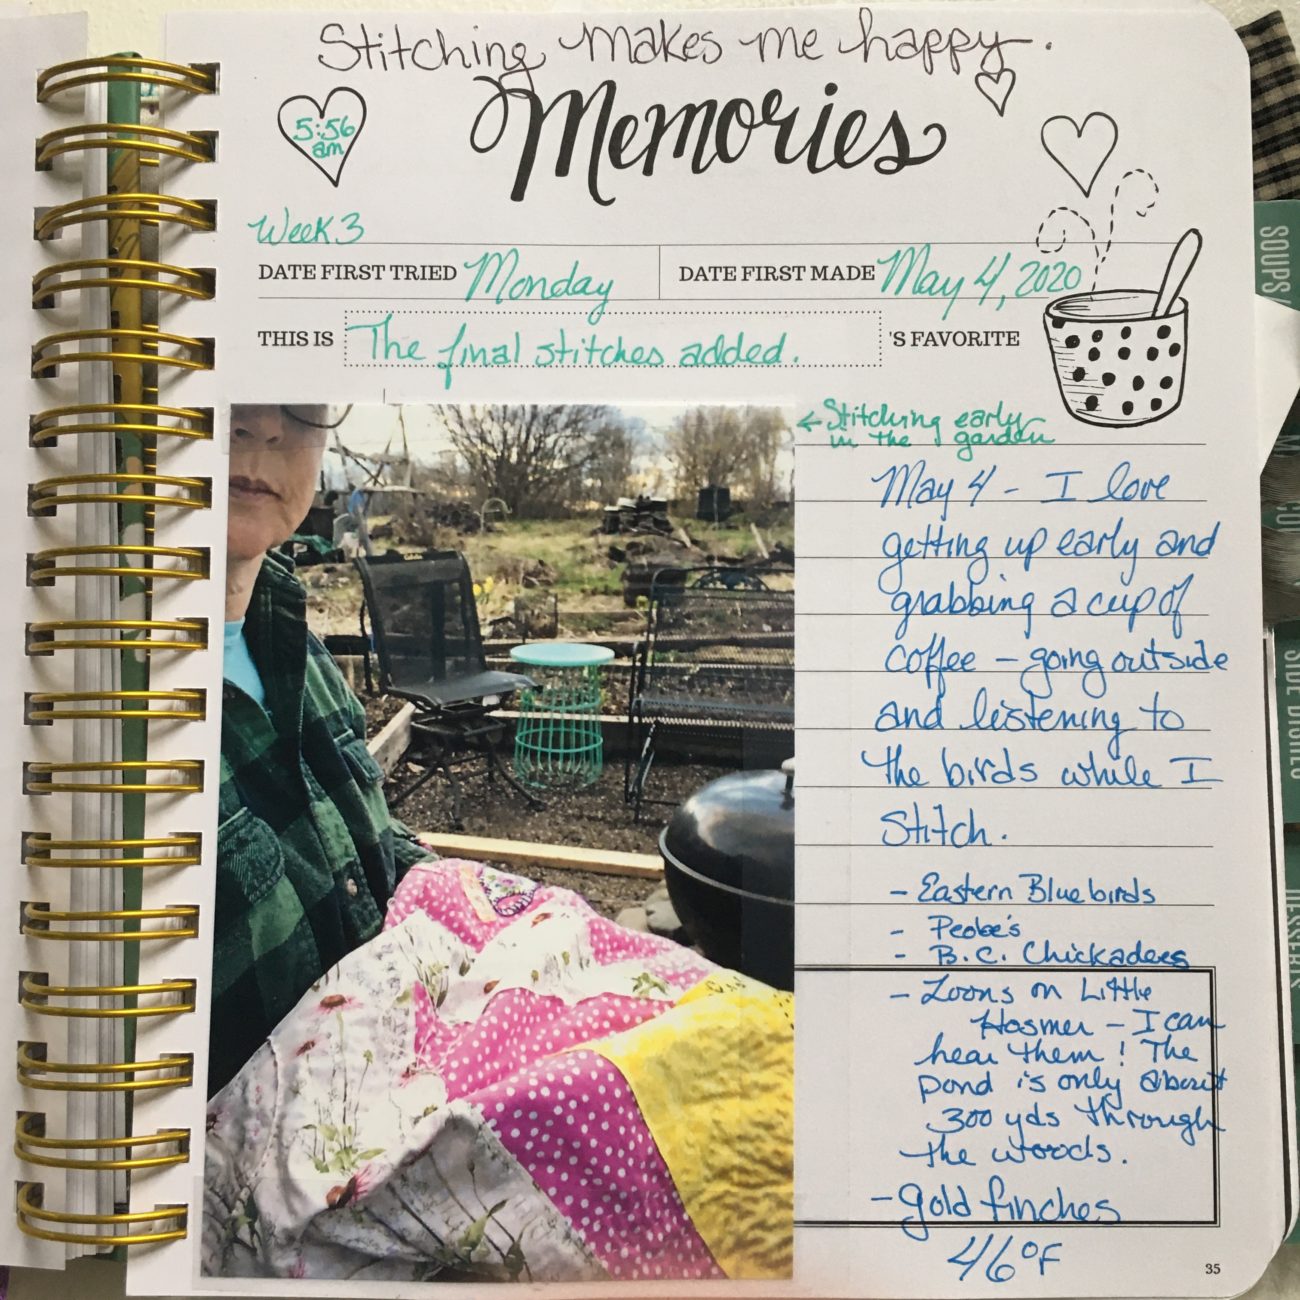 Stitching makes me happy.
5:56
am
Memories
Week 3
DATE FIRST TRIED Monday
DATE FIRST MADE May 4, 2020
THIS IS The final stitches added. 'S FAVORITE
← Stitching early
in the garden
May 4 - I love
getting up early and
grabbing a cup of
coffee - going outside
and listening to
the birds while I
stitch.
- Eastern Bluebirds
- Peobe's
- B.C. Chickadees
- Loons on Little
Hosmer - I can
hear them! The
pond is only about
300 yds through
the woods.
- gold finches
46°F
35
SOUPS
SIDE DISHES